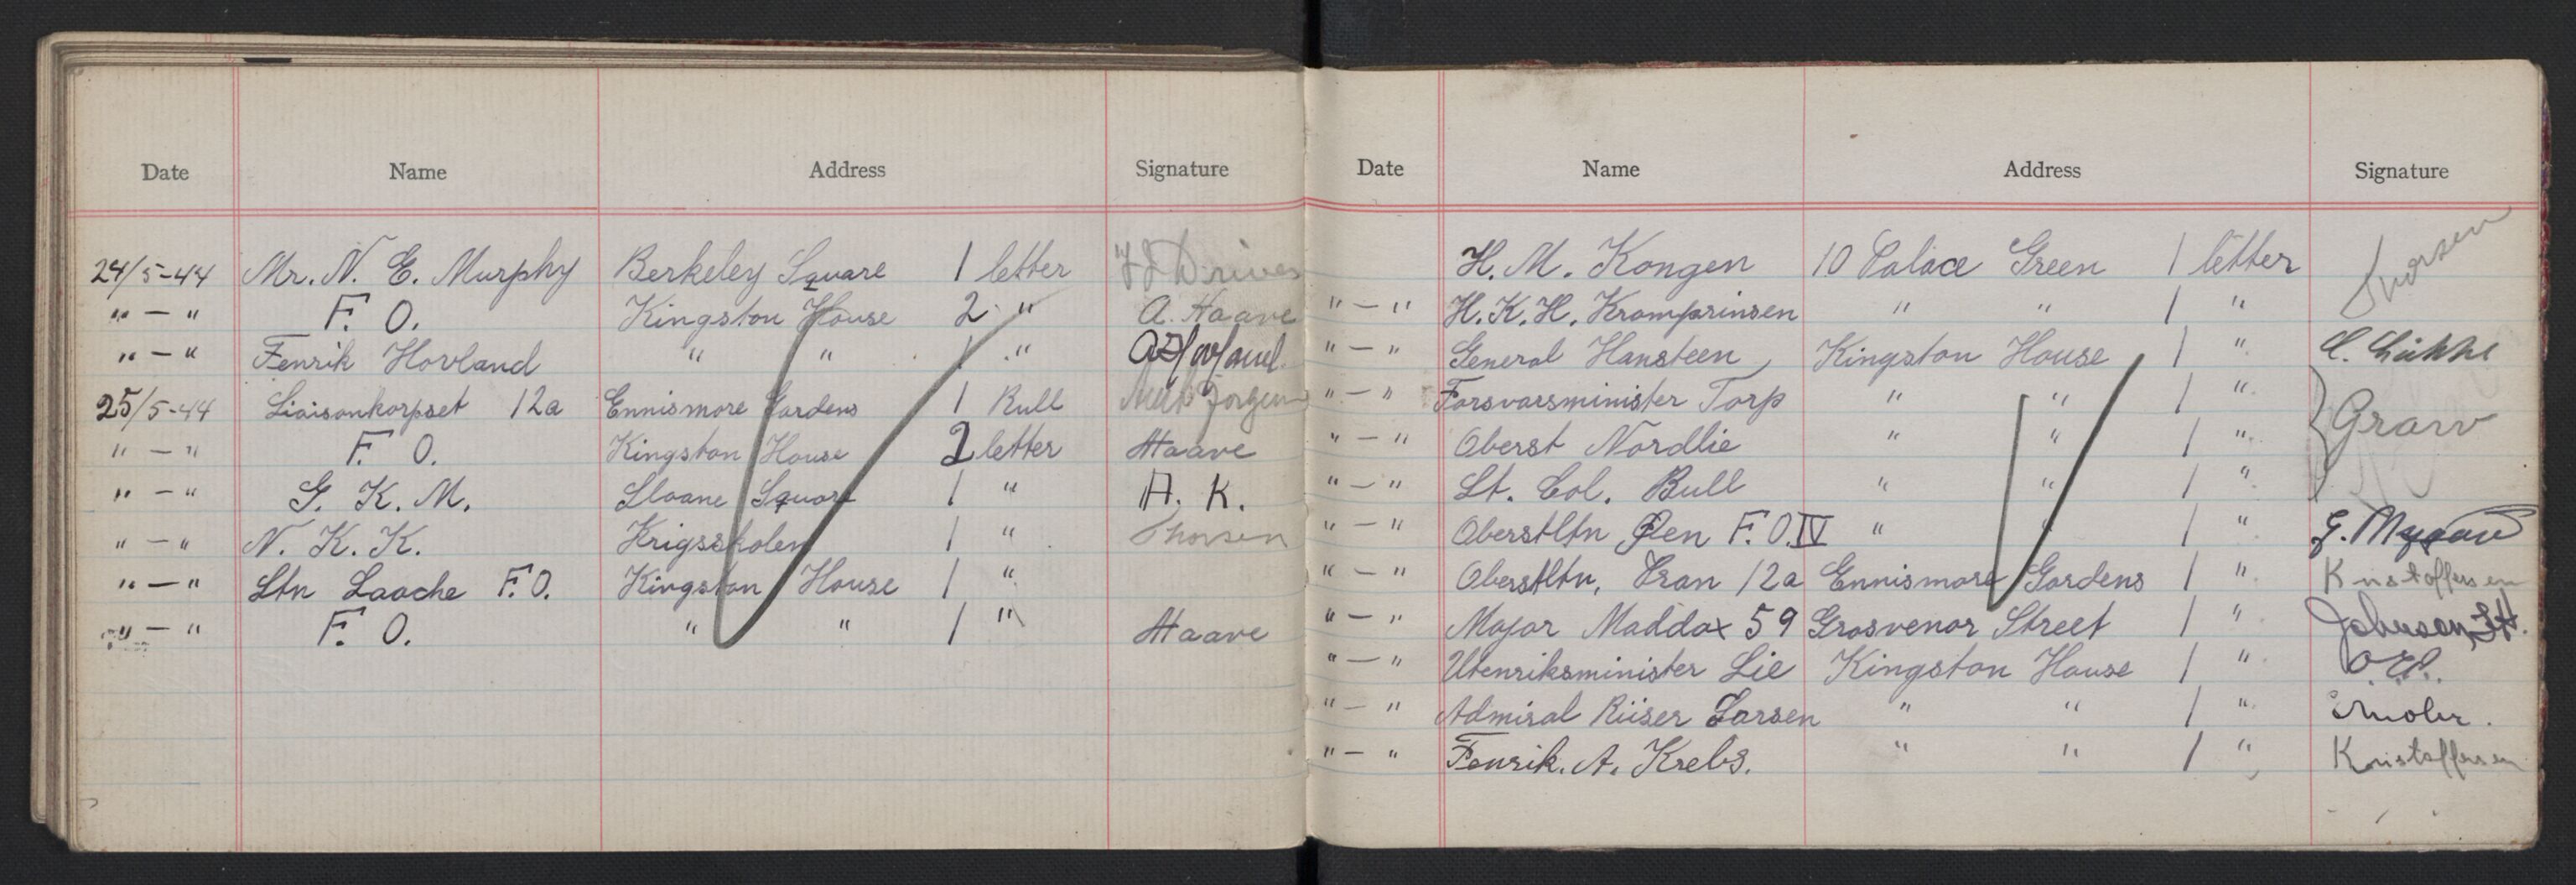 Date Name Address Signature
24/5-44 Mr. N. E. Murphy Berkeley Square 1 letter
" — " F. O. Kingston House 2 " A. Haave
" — " Fenrik Hovland " " 1 "
25/5-44 Liaisonkorpset 12a Ennismore Gardens 1 Rull
" — " F. O. Kingston House 2 letter Haave
" — " G. K. M. Sloane Square 1 " A. K.
" — " N. K. K. Krigsskolen 1 " Thorsen
" — " Ltn Laache F.O. Kingston House 1 "
" — " F. O. " " 1 " Haave
Date Name Address Signature
H. M. Kongen 10 Palace Green 1 letter
" — " H. K. H. Kromprinsen " " 1 "
" — " General Hansteen Kingston House 1 "
" — " Forsvarsminister Torp " " 1 "
" — " Oberst Nordlie " " 1 " Graw
" — " Lt. Col. Bull " " 1 "
" — " Oberstltn Øen F.O.IV " " 1 "
" — " Oberstltn. 12a Ennismore Gardens 1 " Kristoffersen
" — " Major Maddox 59 Grosvenor Street 1 " Johnson
" — " Utenriksminister Lie Kingston House 1 "
" — " Admiral Riiser Larsen " " 1 "
" — " Fenrik. A. Krebs. " " 1 " Kristoffersen